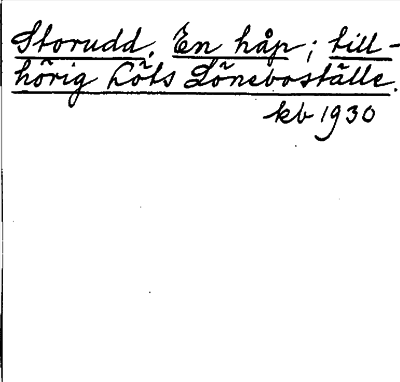 Storudd. En håp; till-
hörig Löts Löneboställe.
kb 1930